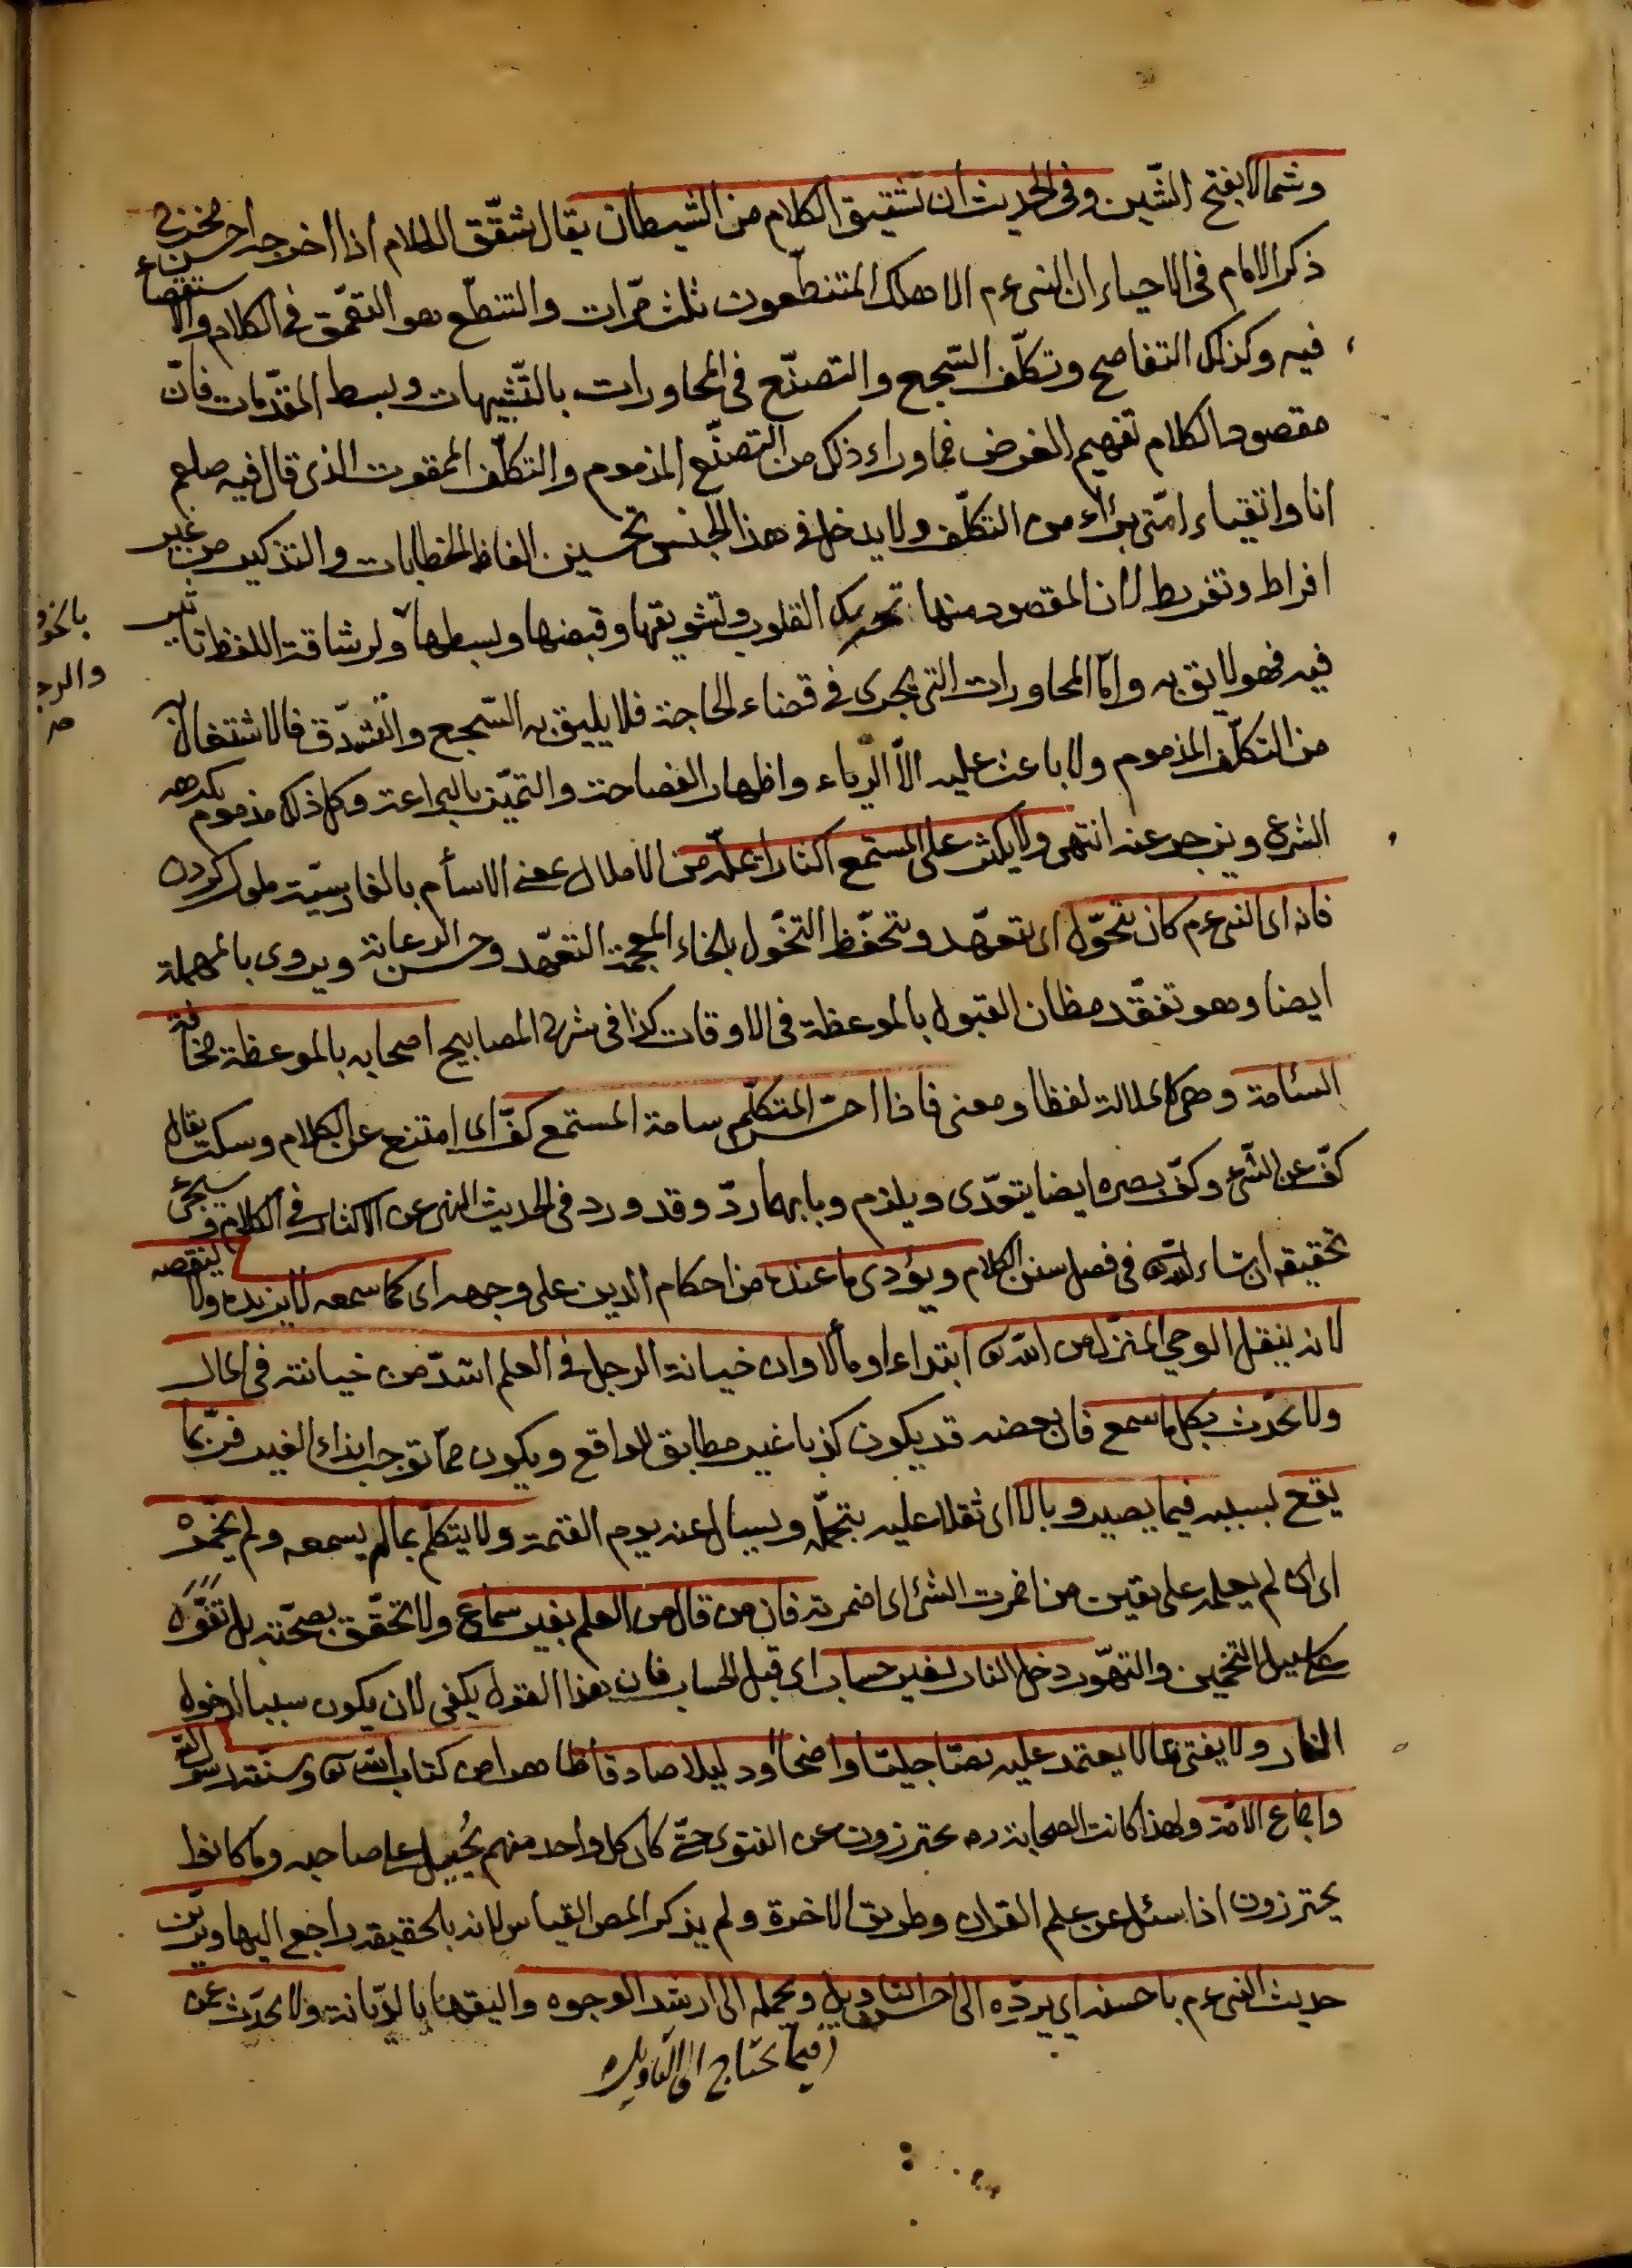 وشمالا بفتح الشّين وفى الحديث ان تشقيق الكلام من الشيطان يقال شقّق الكلام اذا اخرجه احسن مخرج
ذكر الامام فى الاحياء ان النبى عم الا هلك المتنطّعون ثلث مرّات والتنطّع هو التعمّق فى الكلام والاستقصاء
فيه وكذلك التفاصح وتكلّف السّجع والتصنّع فى المحاورات بالتّشبيهات وبسط المقدّمات فانّ
مقصود الكلام تفهيم الغرض فما وراء ذلك من التصنّع المذموم والتكلّف الممقوت الذى قال فيه صلعم
انا واتقياء امّتى برءاء من التكلّف ولا يدخل فى هذا الجنس تحسين الفاظ الخطابات والتذكير من غير
افراط وتفريط لان المقصود منها تحريك القلوب وتشويقها وقبضها وبسطها ولرشاقة اللفظ تأثير
فيه فهو لائق به وامّا المحاورات التى تجرى فى قضاء الحاجة فلا يليق به السّجع والتّشدّق فالاشتغال به
من التكلّف المذموم ولا باعث عليه الاّ الرّياء واظهار الفصاحة والتميّز بالبراعة وكل ذلك مذموم يكرهه
الشرع ويزجر عنه انتهى ولا يكثر على المستمع اكثارا يملّه من الاملال بمعنى الاسأم بالفارسيّة ملول كردن
فانه اى النبى عم كان يتخوّل اى يتعهّد ويتحفّظ التخوّل بالخاء المعجمة التعهّد وحسن الرعاية ويروى بالمهملة
ايضا وهو تفقّد مظان القبول بالموعظة فى الاوقات كذا فى شرح المصابيح اصحابه بالموعظة مخافة
السئامة وهى كالملالة لفظا ومعنى فاذا احسّ المتكلّم سامة المستمع كفّ اى امتنع عن الكلام وسكت يقال
كفّ عن الشىء وكفّ بصره ايضا يتعدّى ويلزم وبابهما ردّ وقد ورد فى الحديث النهى عن الاكثار فى الكلام وسيجئ
تحقيقه ان شاء الله تع فى فصل سنن الكلام ويؤدى ما عنده من احكام الدين على وجهه اى كما سمعه لا يزيده ولا ينقصه
لانه ينقل الوحى المنزل من الله تع ابتداء او مألا وان خيانة الرجل فى العلم اشدّ من خيانته فى المال
ولا يحدّث بكل ما سمع فان بعضه قد يكون كذبا غير مطابق للواقع ويكون ممّا توجب ايذاء الغير فربّما
يقع بسببه فيما يصير وبالا اى ثقلا عليه يتحمّله ويسئال عنه يوم القيمة ولا يتكلّم بما لم يسمعه ولم يخمّره
اى ان لم يعلمه على يقين من اخمرت الشئ اى اضمرته فان من قال من العلم بغير سماع ولا تحقّق بصحّته بل تفوّه
على سبيل التخمين والتهوّر دخل النار بغير حساب اى قبل الحساب فان هذا القول يكفى لان يكون سببا لدخول
النار ولا يفتى بما لا يعتمد عليه نصّا جليّا واضحا او دليلا صادقا ظاهرا من كتاب الله تع وسنّة رسول الله
واجماع الامّة ولهذا كانت الصحابة رض يحترزون عن الفتوى حتّى كان كل واحد منهم يُحيل على صاحبه وما كانوا
يحترزون اذا سئل عن علم القران وطريق الاخرة ولم يذكر المص القياس لانه بالحقيقة راجع اليها
حديث النبى عم باحسنه اى يردّه الى احسن التاويل ويحمله الى ارشد الوجوه واليقها بالدّيانة ولا يحدّث عمن
فيما يحتاج الى التأويل